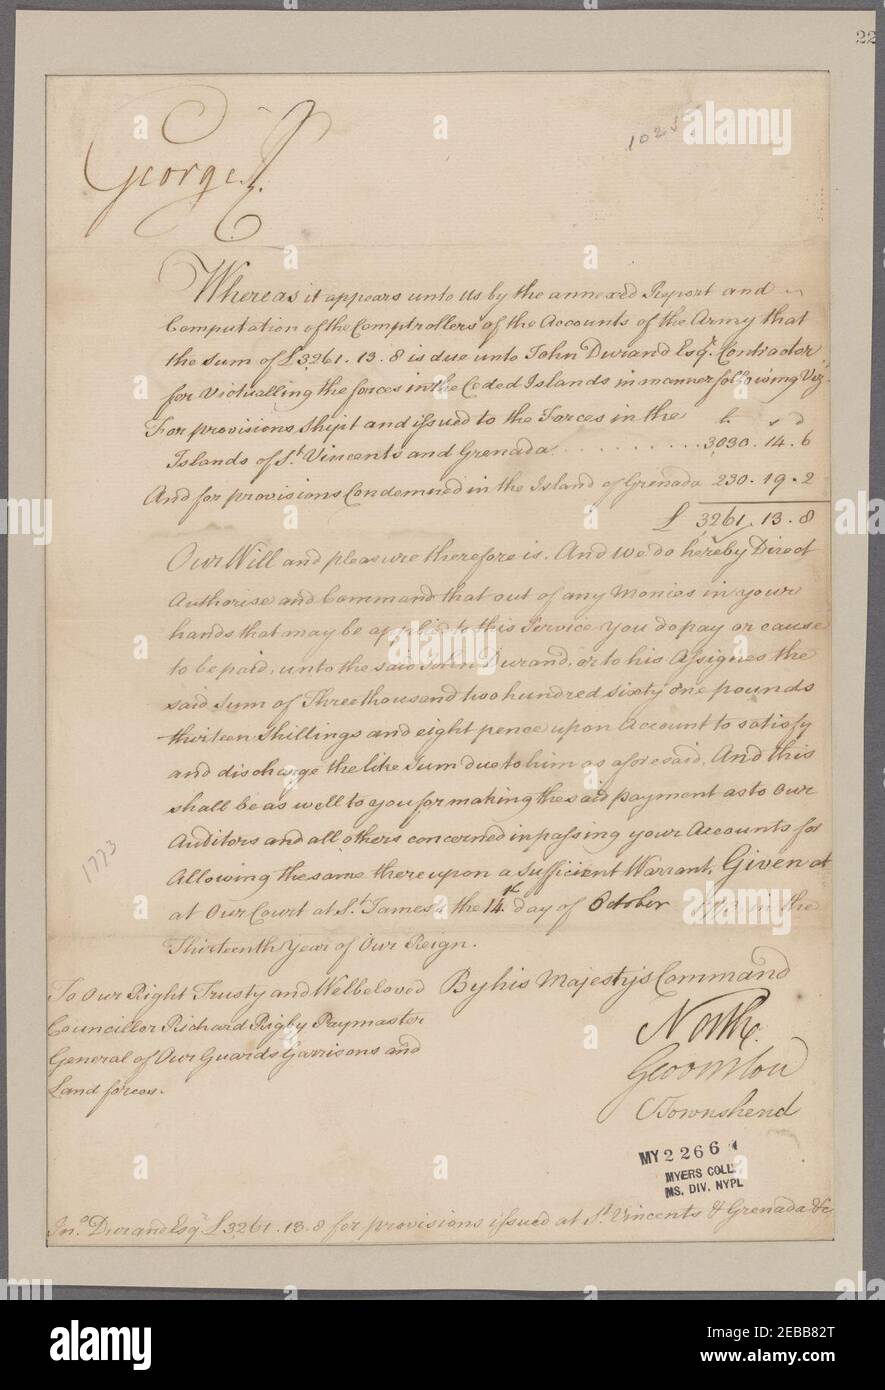 22
1025
George R.
Whereas it appears unto Us by the annexed Report and
Computation of the Comptrollers of the Accounts of the Army that
the sum of £3261.13.8 is due unto John Durand Esqr. Contractor
for Victualling the forces in the Ceded Islands in manner following Vizt.
For provisions Shipt and issued to the Forces in the
Islands of St. Vincents and Grenada . . . . . . . . . 3030.14.6
And for provisions Condemned in the Island of Grenada 230.19.2
£ 3261.13.8
Our Will and pleasure therefore is. And we do hereby Direct
Authorise and Command that out of any Monies in your
hands that may be applied to this Service you do pay or cause
to be paid, unto the said John Durand, or to his Assignes the
said Sum of Three thousand two hundred sixty one pounds
thirteen Shillings and eight pence upon Account to satisfy
and discharge the like Sum due to him as aforesaid, And this
shall be as well to you for making the said payment as to Our
Auditors and all others concerned in passing your Accounts for
Allowing the same thereupon a Sufficient Warrant. Given at
at Our Court at St. James's the 14th. day of October 1773 in the
Thirteenth Year of Our Reign.
1773
By his Majesty's Command
To Our Right Trusty and Welbeloved
Councillor Richard Rigby Paymaster
General of Our Guards Garrisons and
Land forces.
North.
Townshend
MY 2266
MYERS COLL.
MS. DIV. NYPL
Jno. Durand Esqr. £3261.13.8 for provisions issued at St. Vincents & Grenada &c
alamy
Image ID: 2EBB82T
www.alamy.com